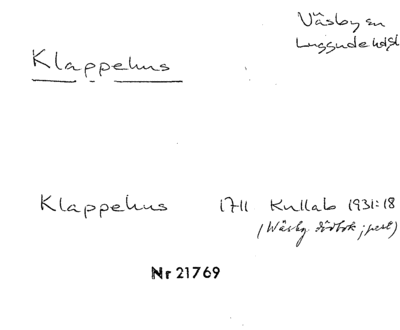 Väsby sn
Luggude hd
Klappehus
Klappehus 1711 Kullab 1931:18
(Wäsby dödbok;
Nr 21769